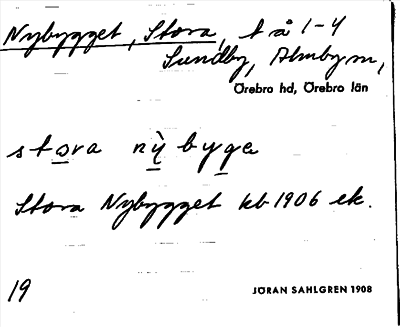 Nybygget, Stora, t å 1-4
Sundby, Almby sn,
Örebro hd, Örebro län
stora nỳ byga
Stora Nybygget kb 1906 ek.
19
JÖRAN SAHLGREN 1908